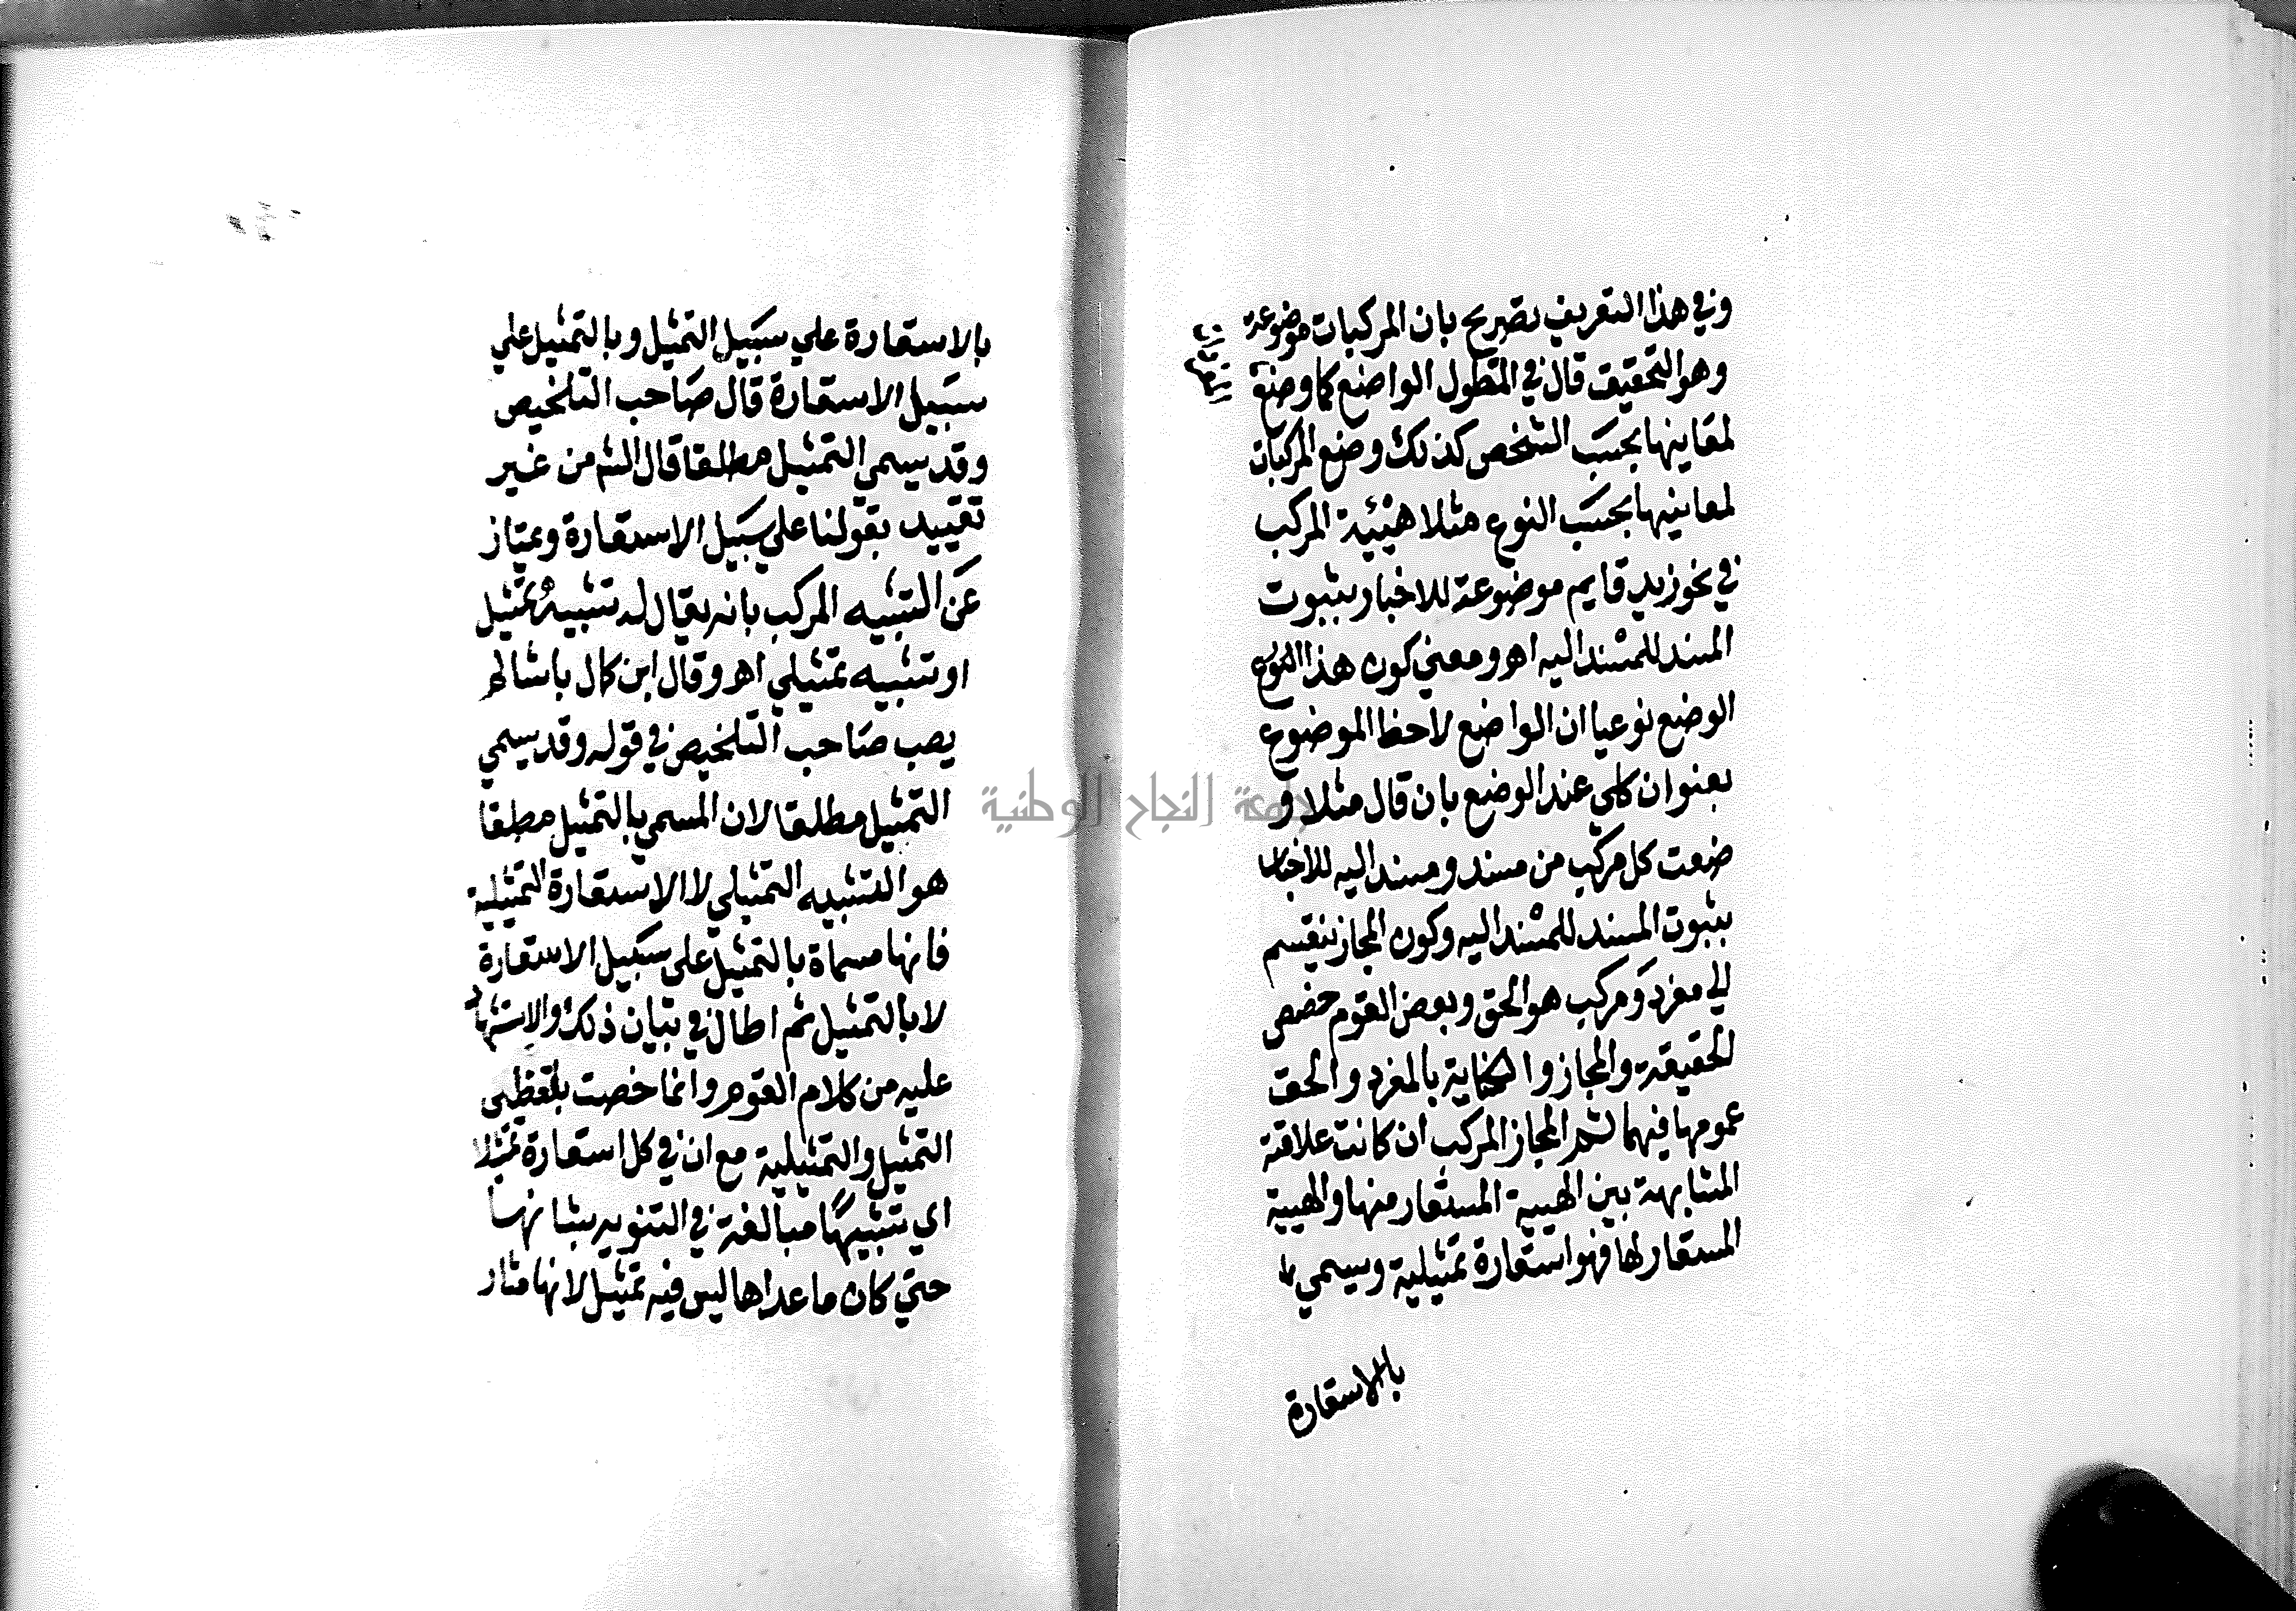 وفي هذا التعريف تصريح بان المركبات موضوعة
وهو التحقيق قال في المطول الواضع كما وضع
المفردات
لمعاينها بحسب الشخص كذلك وضع المركبات
لمعاينها بحسب النوع مثلا هيئة المركب
في نحو زيد قايم موضوعة للاخبار بثبوت
المسند للمسند اليه اهـ ومعني كون هذا النوع
الوضع نوعيا ان الواضع لاحظ الموضوع
بعنوان كلي عند الوضع بان قال مثلا و
ضعت كل مركب من مسند ومسند اليه للاخبار
بثبوت المسند للمسند اليه وكون المجاز ينقسم
الي مفرد ومركب هو الحق وبعض القوم خصص
الحقيقة والمجاز والكناية بالمفرد والحق
عمومها فيهما ثم المجاز المركب ان كانت علاقته
المشابهة بين الهيية المستعار منها والهيية
المستعار لها فهو استعارة تمثيلية ويسمي
بالاستعارة
بالاستعارة علي سبيل التمثيل وبالتمثيل علي
سبيل الاستعارة قال صاحب التلخيص
وقد يسمي التمثيل مطلقا قال الش من غير
تقييد بقولنا علي سبيل الاستعارة ويمتاز
عن التشبيه المركب بانه يقال له تشبيه تمثيل
او تشبيه تمثيلي اهـ وقال ابن كمال باشا لم
يصب صاحب التلخيص في قوله وقد يسمي
التمثيل مطلقا لان المسمي بالتمثيل مطلقا
هو التشبيه التمثيلي لا الاستعارة التمثيلية
فانها مسماة بالتمثيل علي سبيل الاستعارة
لا بالتمثيل ثم اطال في بيان ذلك والاستشهاد
عليه من كلام القوم وانما خصت بلفظي
التمثيل والتمثيلية مع ان في كل استعارة تمثيلا
اي تشبيها مبالغة في التنويه بشانها
حتي كان ما عداها ليس فيه تمثيل لانها مثار
جامعة النجاح الوطنية